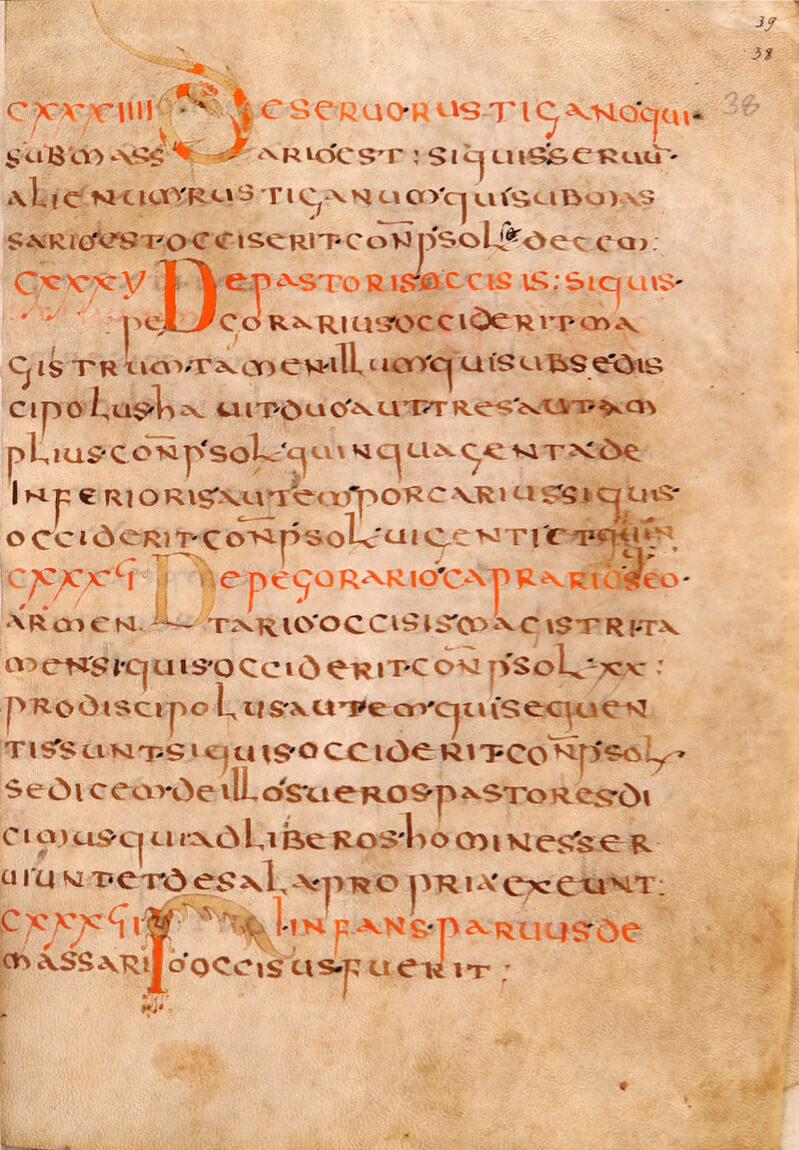 39
38
38
CXXXIIII DESERUO·RUSTICANO·QUI·
SUBMASSARIO·EST: SIQUISSERUU·
ALIENUM·RUSTICANUM·QUISUBMAS
SARIO·EST·OCCISERIT·CONP·SOL DECEM:
CXXXV DEPASTORIS·OCCISIS: SIQUIS·
PECORARIUS·OCCIDERIT·MA
GISTRUM·TAMEN·ILLUM·QUISUBSEDIS
CIPOLUS·HABUIT·DUO·AUT·TRES·AUT·AM
PLIUS·CONP·SOL·QUINQUAGENTA·DE
INFERIORIS·AUTEM·PORCARIUS·SIQUIS·
OCCIDERIT·CONP·SOL·UIGENTI·ET·QUIN
QUE
CXXXVI DEPEGORARIO·CAPRARIO·SEO·
ARMENTARIO·OCCISIS·MAGISTRI·TA
MEN·SI·QUIS·OCCIDERIT·CONP·SOL·XX:
PRODISCIPOLUS·AUTEM·QUISEQUEN
TIS·SUNT·SIQUIS·OCCIDERIT·CONP·SOL X·
SEDICEM·DEILLOS·UEROS·PASTORES·DI
CIMUS·QUI·ADLIBEROS·HOMINES·SER
UIUNT·ET·DESALA·PROPRIA·EXEUNT:
CXXXVII SI·INFANS·PARUUS·DE
MASSARIO·OCCISUS·FUERIT: